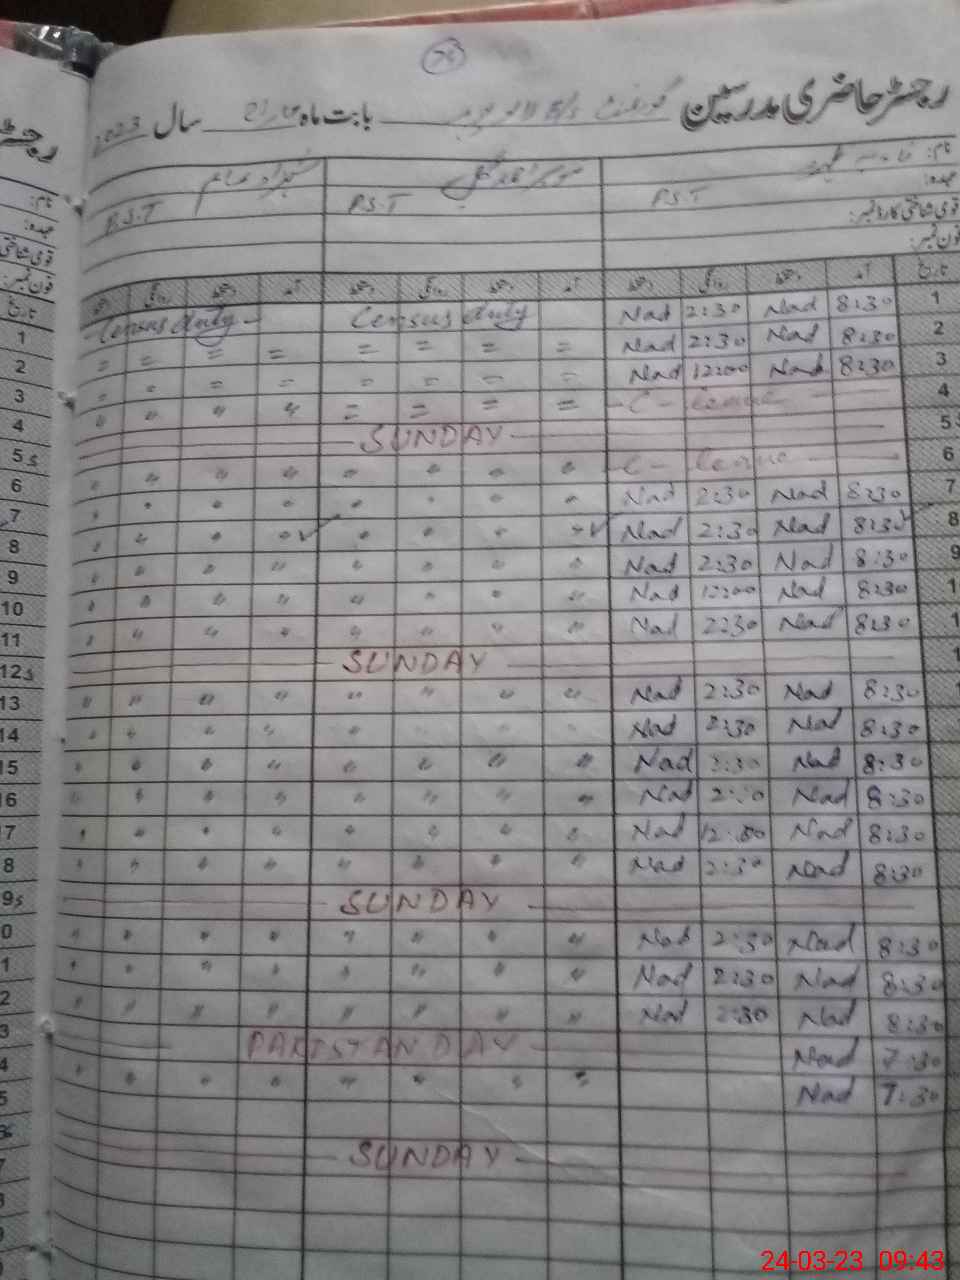 رجسٹر حاضری مدرسین گورنمنٹ بابت ماہ مارچ سال 2023
نام:
عہدہ: P.S.T P.S.T P.S.T
قومی شناختی کارڈ نمبر:
فون نمبر:
تاریخ آمد دستخط روانگی دستخط آمد دستخط روانگی دستخط آمد دستخط روانگی دستخط
1 8:30 Nad 2:30 Nad Census duty Census duty 1
2 8:30 Nad 2:30 Nad = = = = = = = = 2
3 8:30 Nad 12:00 Nad = = = = = = = = 3
4 C - leave = = = = " " " " 4
5 SUNDAY 5 S
6 C - leave " " " " " " " " 6
7 8:30 Nad 2:30 Nad " " " " " " " " 7
8 8:30 Nad 2:30 Nad " " " " " " " " 8
9 8:30 Nad 2:30 Nad " " " " " " " " 9
1 8:30 Nad 12:00 Nad " " " " " " " " 10
1 8:30 Nad 2:30 Nad " " " " " " " " 11
1 SUNDAY 12 S
1 8:30 Nad 2:30 Nad " " " " " " " " 13
8:30 Nad 2:30 Nad " " " " " " " " 14
8:30 Nad 2:30 Nad " " " " " " " " 15
8:30 Nad 2:30 Nad " " " " " " " " 16
8:30 Nad 12:00 Nad " " " " " " " " 17
8:30 Nad 2:30 Nad " " " " " " " " 8
SUNDAY 9 S
8:30 Nad 2:30 Nad " " " " " " " " 0
8:30 Nad 2:30 Nad " " " " " " " " 1
8:30 Nad 2:30 Nad " " " " " " " " 2
7:30 Nad PAKISTAN DAY 3
7:30 Nad " " " " " " " " 4
5
SUNDAY
24-03-23 09:43